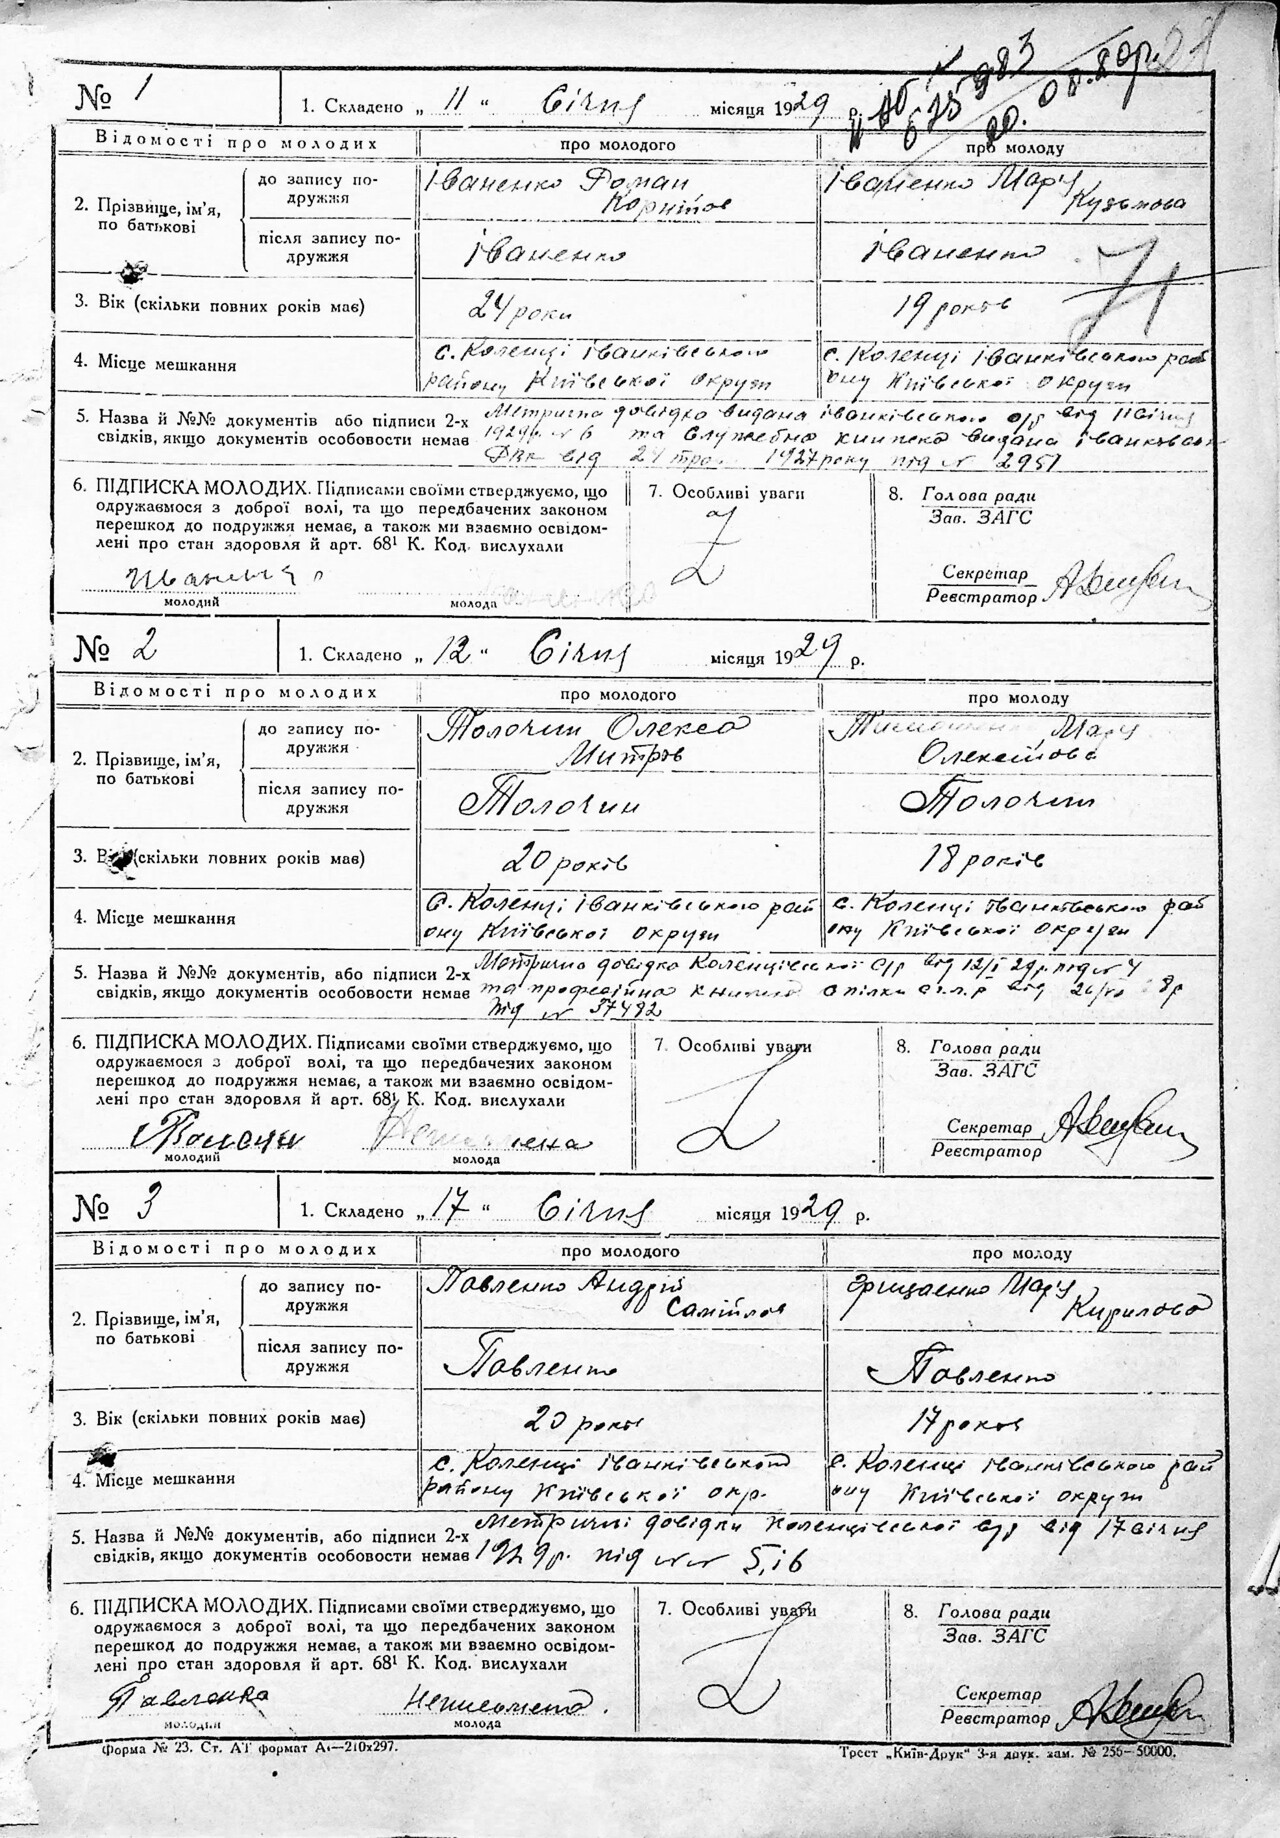 № 1
1. Складено „ 11 “ Січня місяця 1929 р.
20.08.80р.
Відомості про молодих
про молодого
про молоду
2. Прізвище, ім'я, по батькові
до запису по-
дружжя
Іваненко Роман
Корнійов
Іваненко Марія
Кузьмова
після запису по-
дружжя
Іваненко
Іваненко
3. Вік (скільки повних років має)
24 роки
19 років
4. Місце мешкання
с. Коленці Іванківського
району Київської округи
с. Коленці Іванківського рай
ону Київської округи
5. Назва й №№ документів або підписи 2-х
свідків, якщо документів особовости немає
Метрична довідка видана Іванківською с/р від 11 Січня
1929р. № 6 та Службова книжка видана Іванковським
РВК від 24 1927 року під № 2951
6. ПІДПИСКА МОЛОДИХ. Підписами своїми стверджуємо, що
одружаємося з доброї волі, та що передбачених законом
перешкод до подружжя немає, а також ми взаємно освідом-
лені про стан здоровля й арт. 68¹ К. Код. вислухали
молодий
молода
7. Особливі уваги
8. Голова ради
Зав. ЗАГС
Секретар
Реєстратор
№ 2
1. Складено „ 12 “ Січня місяця 1929 р.
Відомості про молодих
про молодого
про молоду
2. Прізвище, ім'я,
по батькові
до запису по-
дружжя
Толочин Олекса
Митров
Марія
Олексійова
після запису по-
дружжя
Толочин
Толочин
3. Вік (скільки повних років має)
20 років
18 років
4. Місце мешкання
с. Коленці Іванківського рай
ону Київської округи
с. Коленці Іванківського рай
ону Київської округи
5. Назва й №№ документів, або підписи 2-х
свідків, якщо документів особовости немає
Метрична довідка Коленцівської с/р від 12/I 29р. під № 4
та професійна книжка спілки с.г.л.р від
під № 37492
6. ПІДПИСКА МОЛОДИХ. Підписами своїми стверджуємо, що
одружаємося з доброї волі, та що передбачених законом
перешкод до подружжя немає, а також ми взаємно освідом-
лені про стан здоровля й арт. 68¹ К. Код. вислухали
Толочин
молодий
молода
7. Особливі уваги
8. Голова ради
Зав. ЗАГС
Секретар
Реєстратор
№ 3
1. Складено „ 17 “ Січня місяця 1929 р.
Відомості про молодих
про молодого
про молоду
2. Прізвище, ім'я,
по батькові
до запису по-
дружжя
Павленко Андрій
Самійлов
Грищенко Марія
Кирилова
після запису по-
дружжя
Павленко
Павленко
3. Вік (скільки повних років має)
20 років
17 років
4. Місце мешкання
с. Коленці Іванківського
району Київської окр.
с. Коленці Іванківського рай
ону Київської округи
5. Назва й №№ документів, або підписи 2-х
свідків, якщо документів особовости немає
Метричні довідки Коленцівської с/р від 17 січня
1929р. під №№ 5, і 6
6. ПІДПИСКА МОЛОДИХ. Підписами своїми стверджуємо, що
одружаємося з доброї волі, та що передбачених законом
перешкод до подружжя немає, а також ми взаємно освідом-
лені про стан здоровля й арт. 68¹ К. Код. вислухали
Павленко
молодий
Неписьмена.
молода
7. Особливі уваги
8. Голова ради
Зав. ЗАГС
Секретар
Реєстратор
Форма № 23. Ст. АТ формат А₄—210x297.
Трест „Київ-Друк“ 3-я друк. зам. № 256—50000.